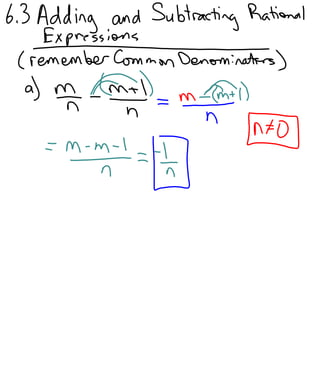 6.3 Adding and Subtracting Rational
Expressions
(remember Common Denominators)
a) m/n - (m+1)/n = m-(m+1)/n
n≠0
= m-m-1/n = -1/n